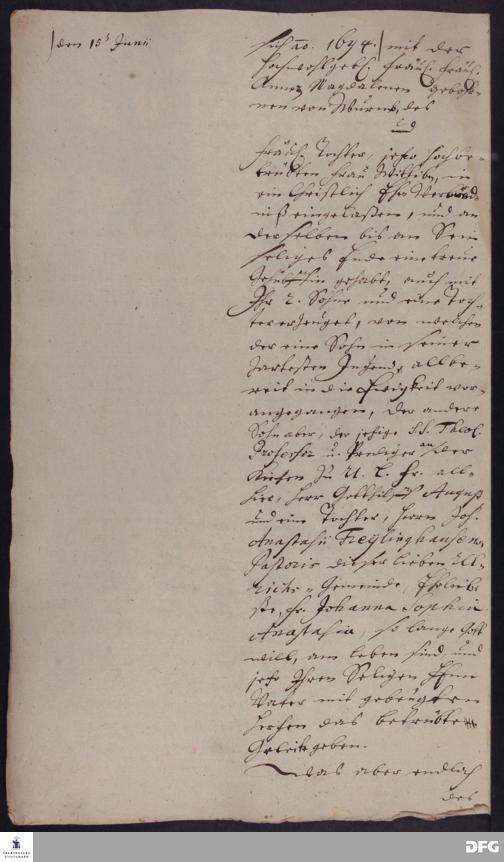 den 15t Junii
sich ao. 1694. mit der
Hochwohlgeb. Fräul. Fräul.
Anna Magdalenen gebohr-
nen von Wurmb, des
Fräul. Tochter, jetzo hochbe-
trübten Frau Wittibe, in
ein Christlich Ehe Verbünd-
niß eingelaßen, und an
derselben bis an Sein
seliges Ende eine treue
Gehülffin gehabt, auch mit
Ihr 2. Söhne und eine Toch-
ter erzeuget, von welchen
der eine Sohn in seiner
zartesten Jugend allbe-
reit in die Ewigkeit vor-
angegangen, der andere
Sohn aber, der jetzige S.S. Theol.
Professor u. Prediger an der
Kirchen zu U. L. Fr. all-
hier, Herr Gotthilf August
und eine Tochter, Herrn Joh.
Anastasii Freylinghausen,
Pastoris dieser lieben Ul-
richs-Gemeinde, Eheliebste,
Fr. Johanna Sophia
Anastasia, so lange Gott
will, am leben sind, und
jetzo Ihren Seligen Herrn
Vater mit gebeugtem
Hertzen das betrübte
Geleite geben.
Was aber endlich
des
FRANCKESCHE
STIFTUNGEN
DFG